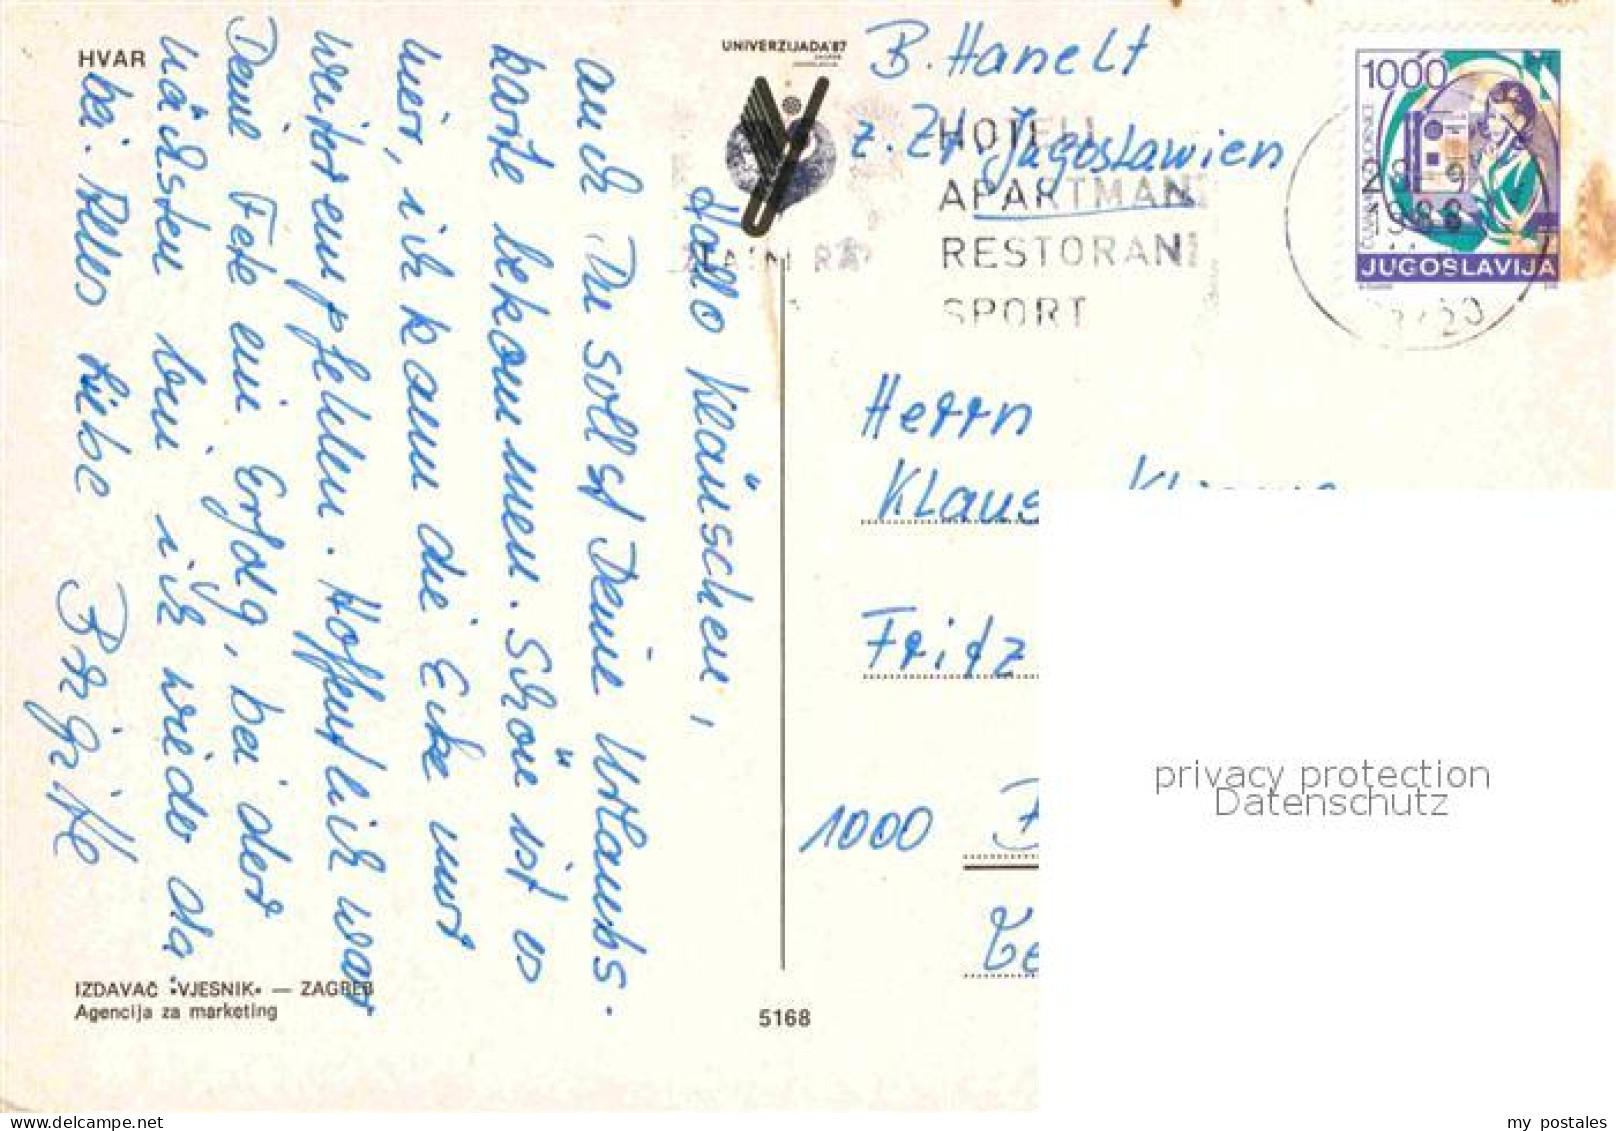 HVAR
UNIVERZIJADA'87
ZAGREB
B. Hanelt
z. Zt. Jugoslawien
HOTELI
APARTMANI
RESTORANI
SPORT
1000
JUGOSLAVIJA
1988
Hallo Kläuschen,
auch Du sollst Deine Urlaubs-
karte bekommen. Schön ist es
hier, ich kann die Ecke nur
weiterempfehlen. Hoffentlich war
Deine Fete ein Erfolg, bei der
nächsten bin ich wieder da
bei. Alles Liebe
Brigitte
Herrn
Klaus
Fritz
1000
IZDAVAČ «VJESNIK» — ZAGREB
Agencija za marketing
5168
privacy protection
Datenschutz
my postales